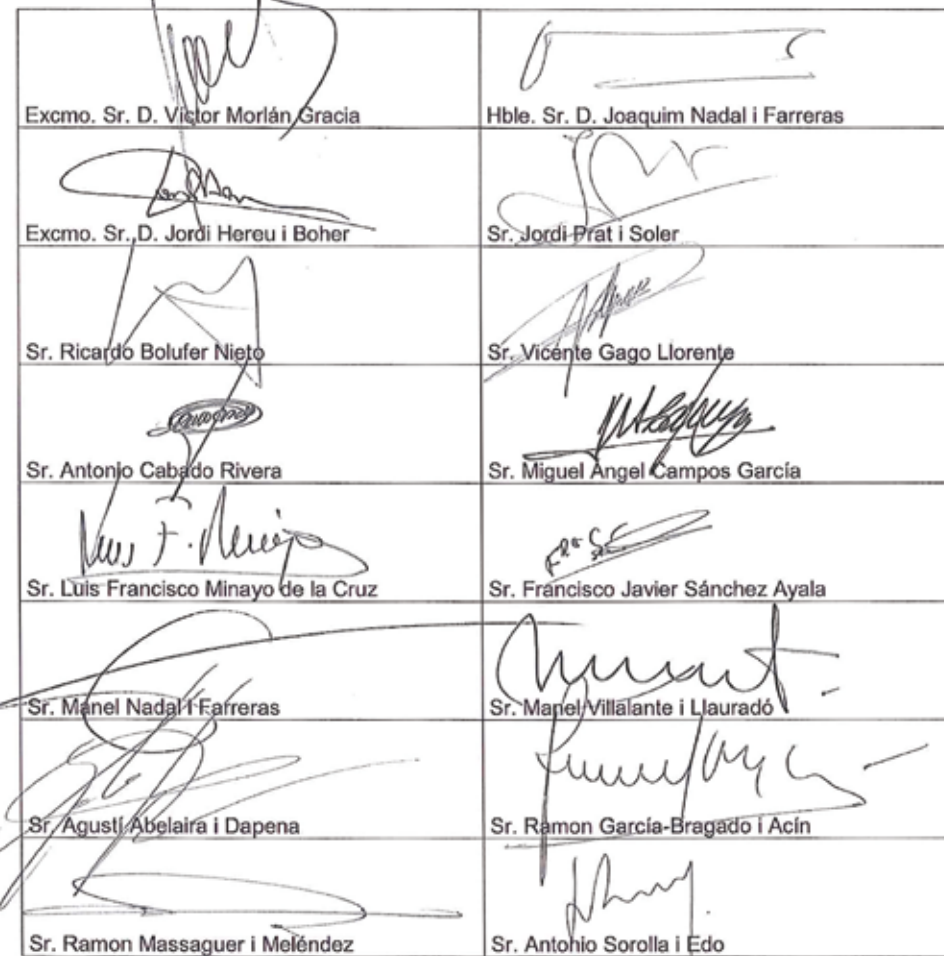 Excmo. Sr. D. Víctor Morlán Gracia
Hble. Sr. D. Joaquim Nadal i Farreras
Excmo. Sr. D. Jordi Hereu i Boher
Sr. Jordi Prat i Soler
Sr. Ricardo Bolufer Nieto
Sr. Vicente Gago Llorente
Sr. Antonio Cabado Rivera
Sr. Miguel Ángel Campos García
Sr. Luis Francisco Minayo de la Cruz
Sr. Francisco Javier Sánchez Ayala
Sr. Manel Nadal i Farreras
Sr. Manel Villalante i Llauradó
Sr. Agustí Abelaira i Dapena
Sr. Ramon García-Bragado i Acín
Sr. Ramon Massaguer i Meléndez
Sr. Antonio Sorolla i Edo